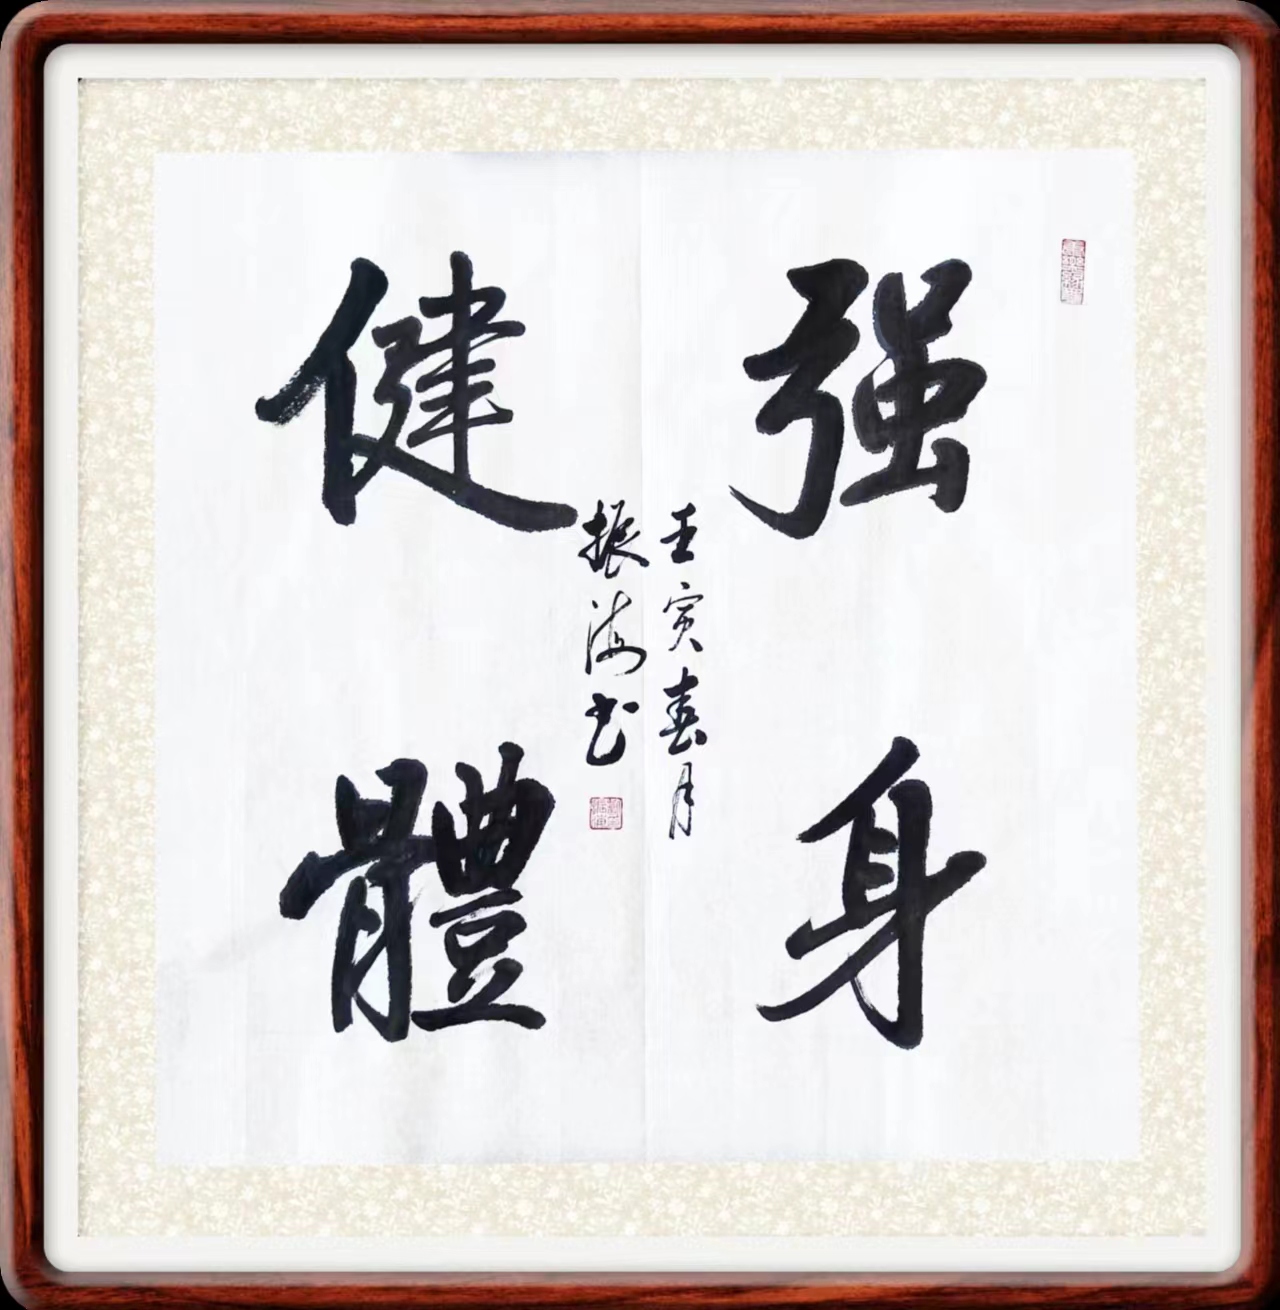 强身
健體
壬寅春月
振海书